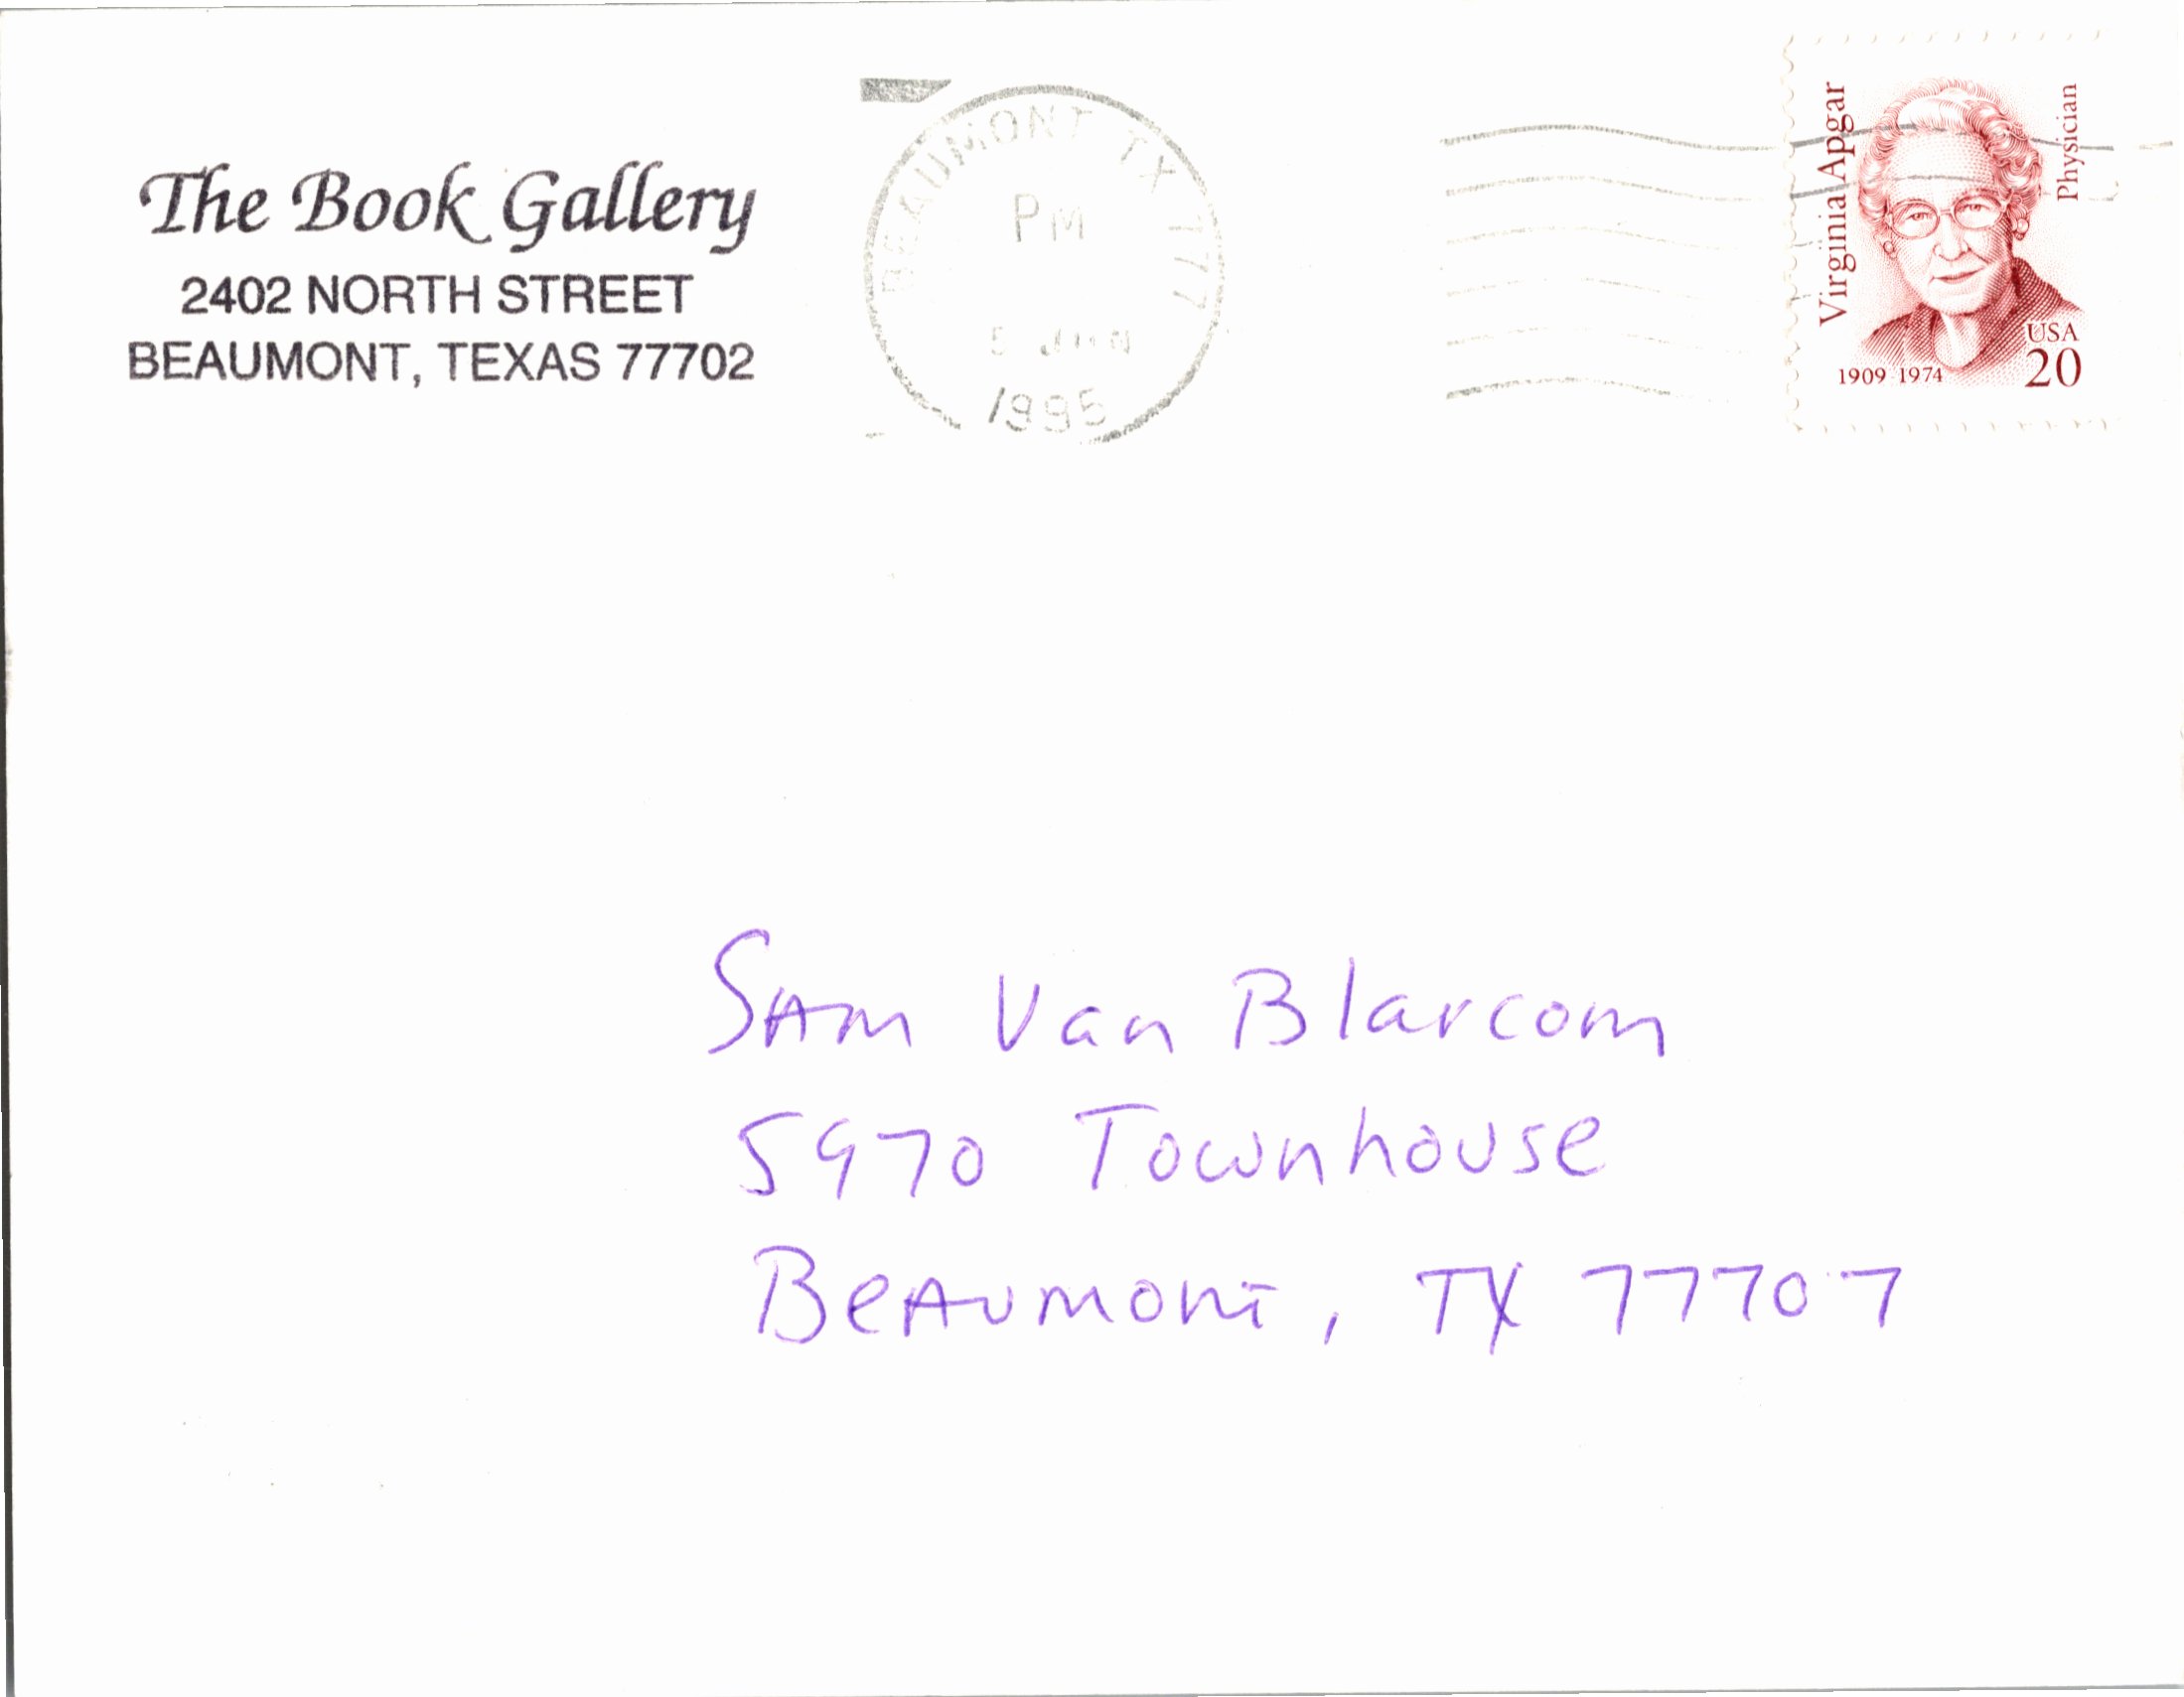 The Book Gallery
2402 NORTH STREET
BEAUMONT, TEXAS 77702
BEAUMONT TX 777
PM
5
1995
Virginia Apgar
Physician
USA
20
1909 1974
SAm Van Blarcom
5970 Townhouse
BeAumont, TX 77707